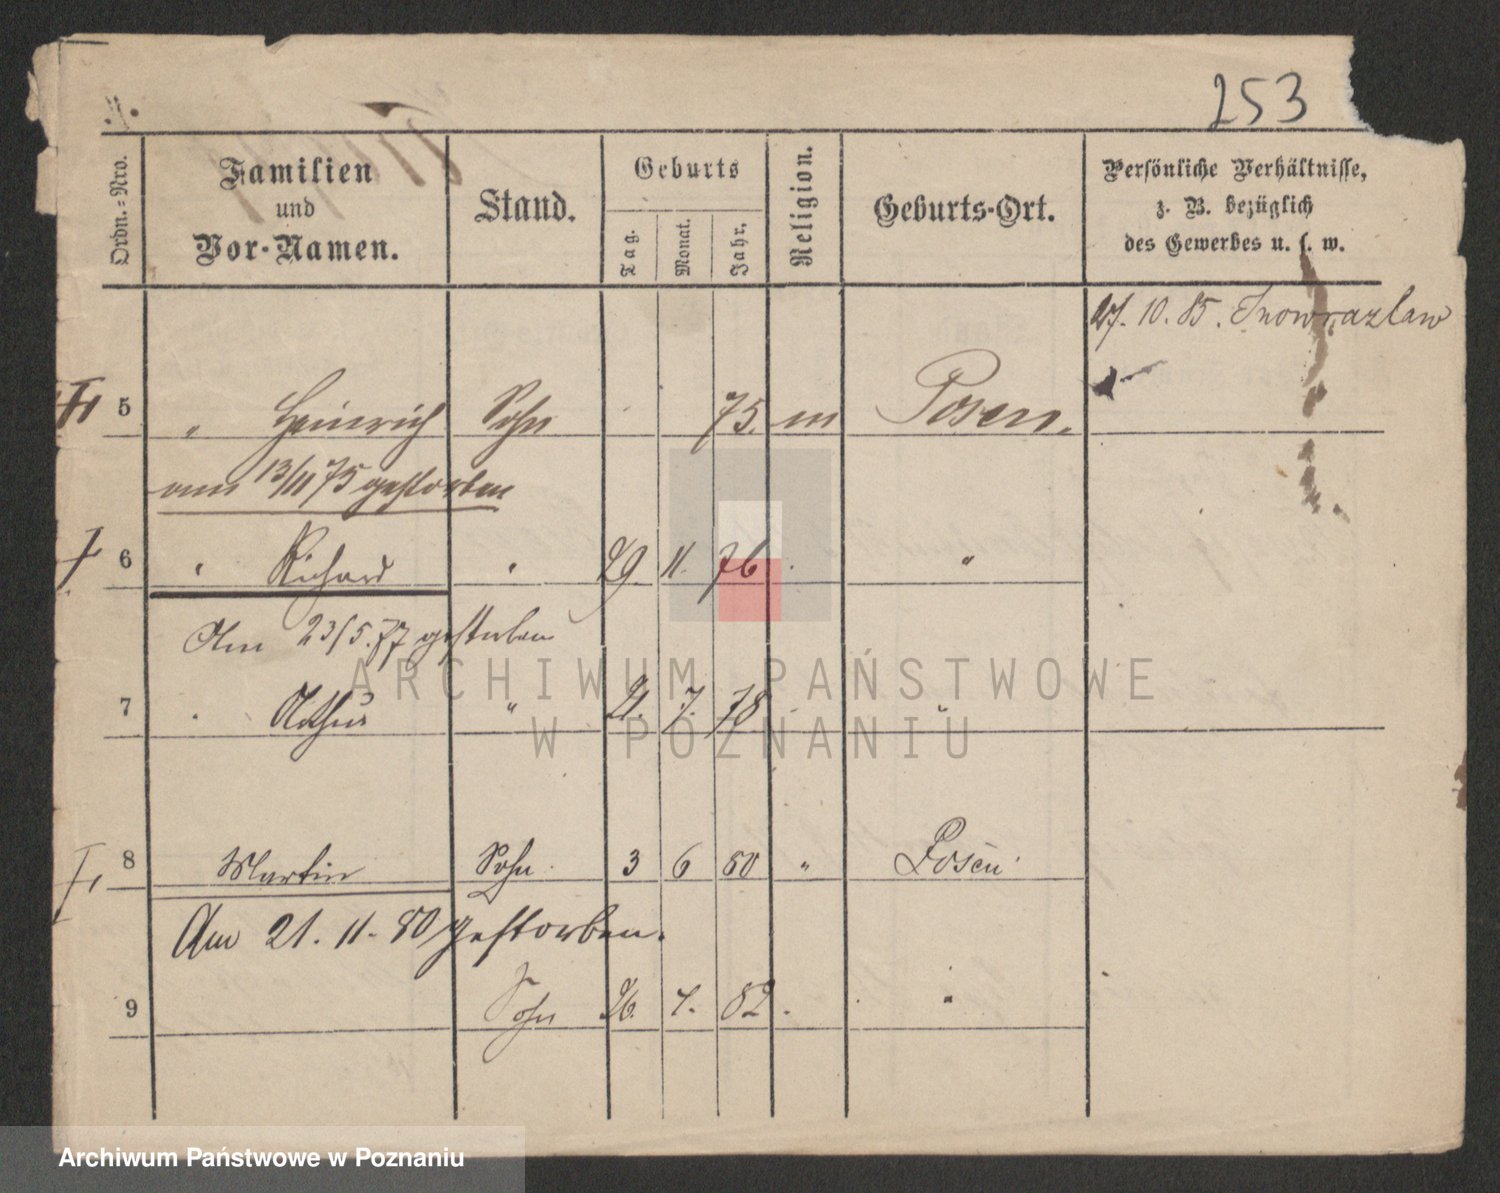 253
Ordn.-Nro.
Familien
und
Vor-Namen.
Stand.
Geburts
Tag. Monat. Jahr.
Religion.
Geburts-Ort.
Persönliche Verhältnisse,
z. B. bezüglich
des Gewerbes u. s. w.
27. 10. 85. Inowrazlaw
5 " Heinrich Sohn 75. m Posen.
am 13/11 75 gestorben
6 " Richard " 29 11. 76 . "
Am 23/5. 77 gestorben
7 " Arthur " 21. 7. 78 "
8 Martin Sohn. 3 6 80 " Posen.
Am 21. 11. 80 gestorben.
9 Sohn 26. 82 "
ARCHIWUM PAŃSTWOWE
W POZNANIU
Archiwum Państwowe w Poznaniu